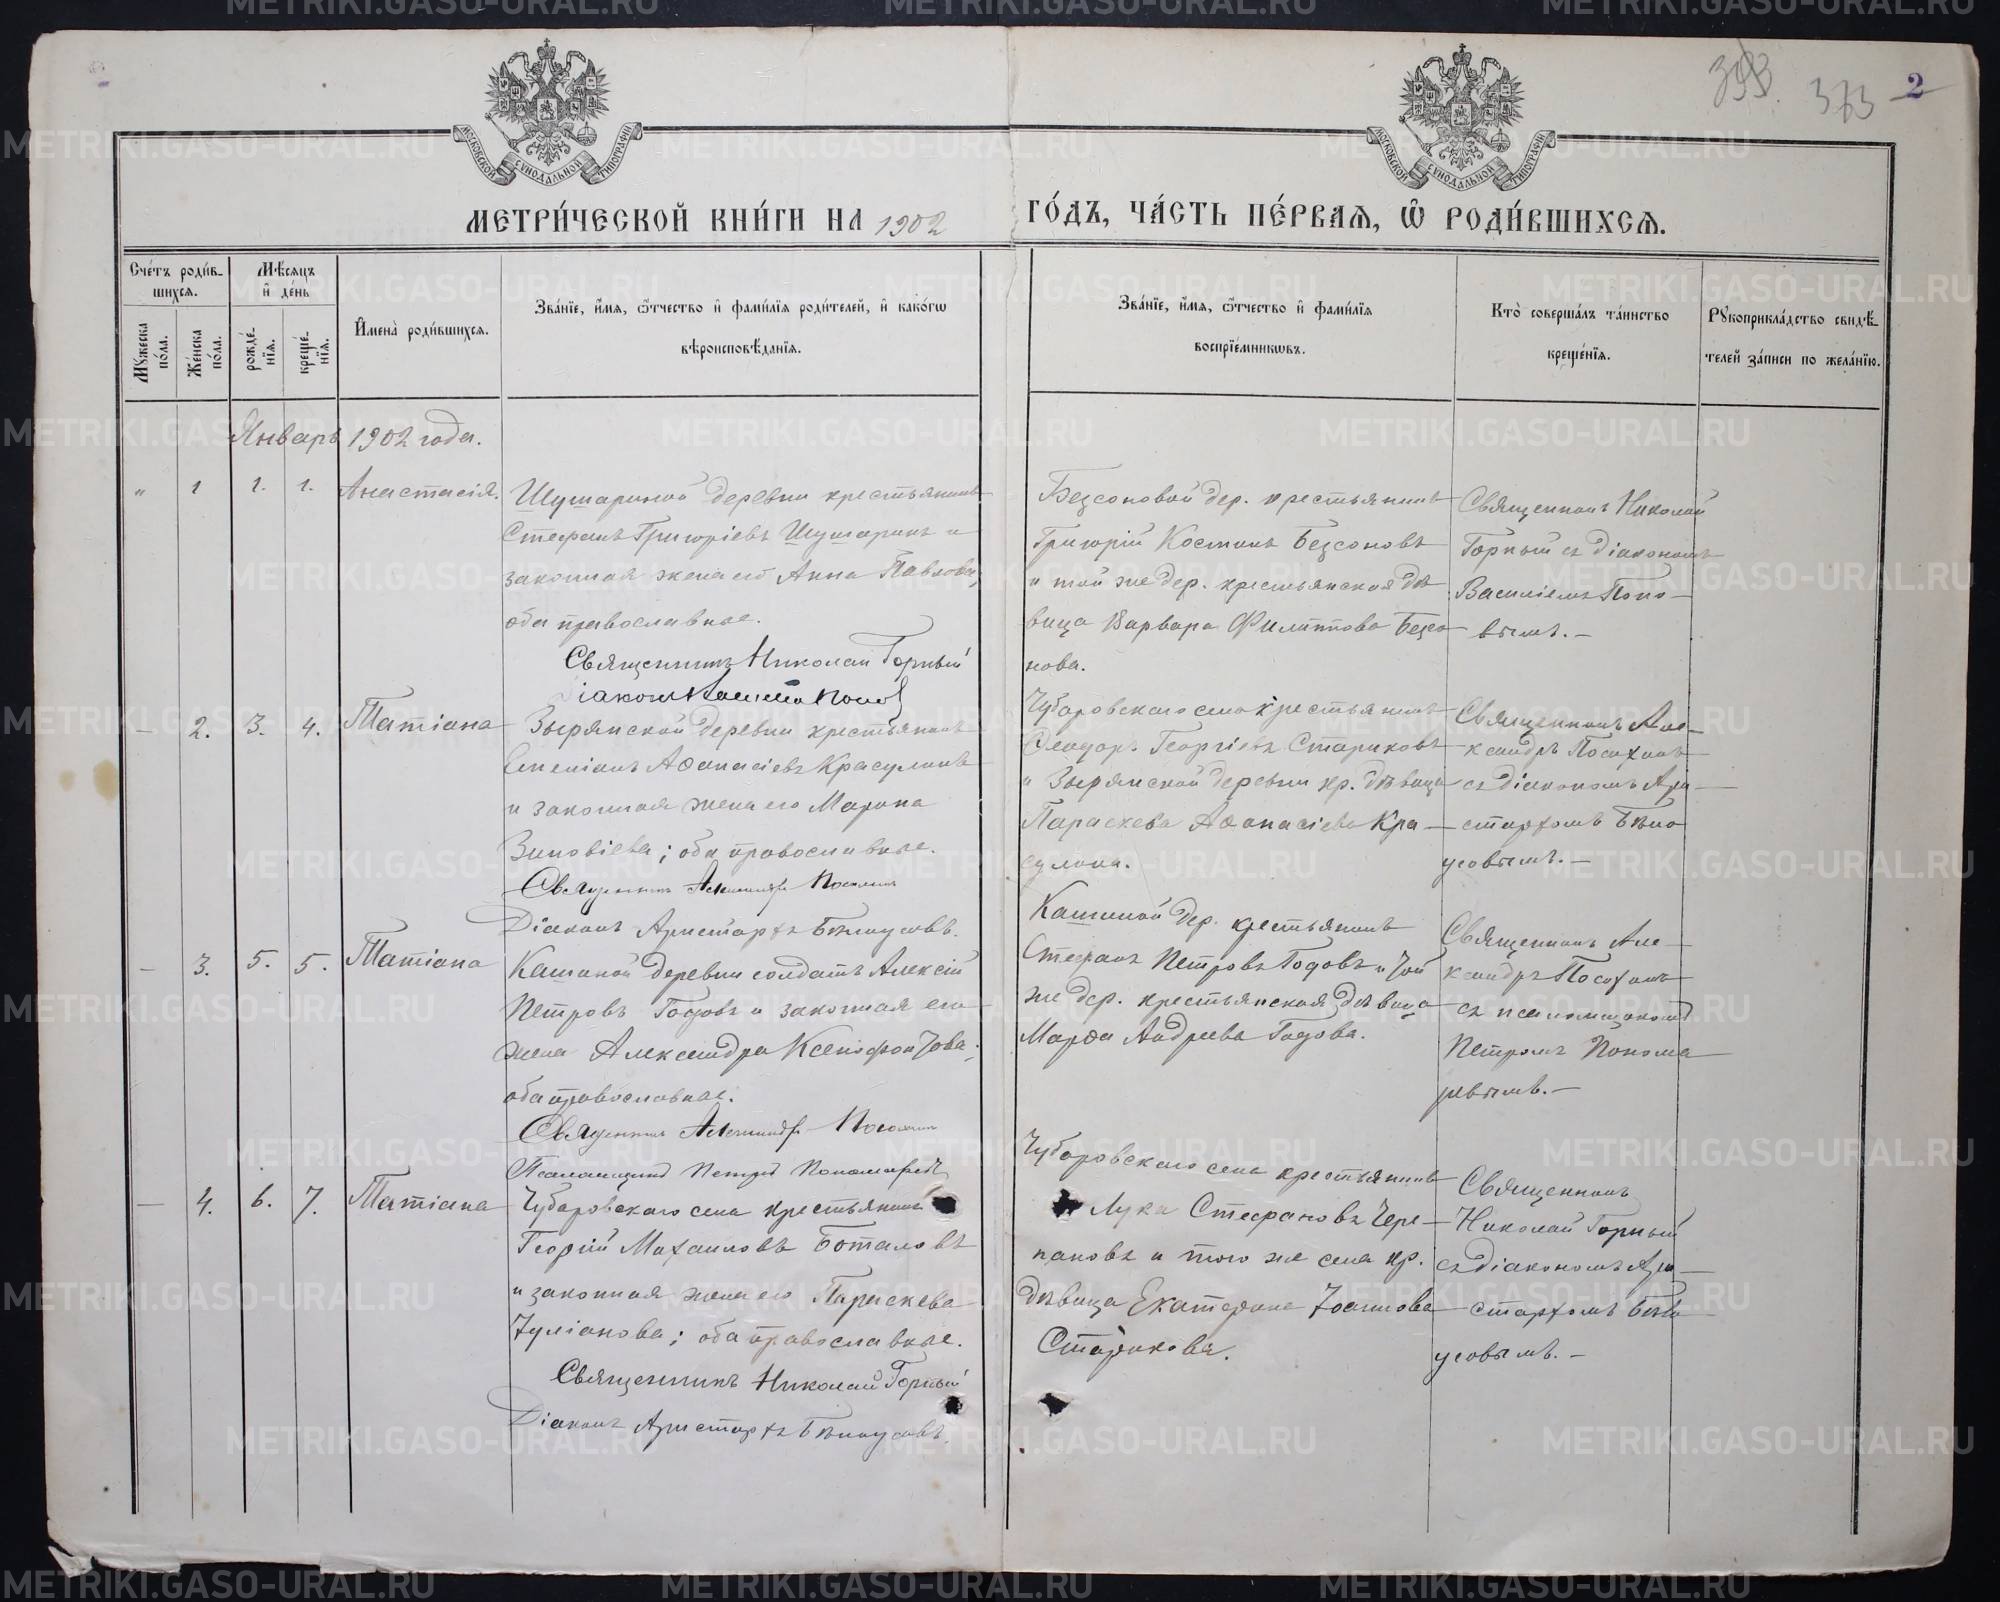 393. 373 2
МОСКОВСКОЙ СѴНОДАЛЬНОЙ ТИПОГРАФІИ
МОСКОВСКОЙ СѴНОДАЛЬНОЙ ТИПОГРАФІИ
МЕТРИ́ЧЕСКОЙ КНИ́ГИ НА 1902 ГО́ДЪ, ЧА́СТЬ ПЕ́РВАЯ, Ѽ РОДИ́ВШИХСЯ.
Сче́тъ роди́в-
шихся.
Мꙋжеска
по́ла.
Же́нска
по́ла.
Мѣ́сяцъ
и҆ де́нь
рожде́-
нїя.
креще́-
нїя.
И҆мена̀ роди́вшихся.
Зва́нїе, и҆́мя, ѻ҆́тчество и҆ фами́лїя роди́телей, и҆ како́гѡ
вѣроисповѣ́данїя.
Зва́нїе, и҆́мя, ѻ҆́тчество и҆ фами́лїя
воспрїе́мникѡвъ.
Кто̀ соверша́лъ та́инство
креще́нїя.
Рꙋкоприкла́дство свидѣ́-
телей за́писи по жела́нїю.
Январь 1902 года.
" 1 1. 1. Анастасія.
Шушариной деревни крестьянинъ
Стефанъ Григоріевъ Шушаринъ и
законная жена его Анна Павлова,
оба православные.
Священникъ Николай Горный
Діаконъ Василій Попов
Безсоновой дер. крестьянинъ
Григорій Косминъ Безсоновъ
и той же дер. крестьянская дѣ
вица Варвара Филиппова Безсо
нова.
Священникъ Николай
Горный съ діакономъ
Василіемъ Попо-
вымъ.-
- 2. 3. 4. Татіана
Зырянской деревни крестьянинъ
Аѳанасіевъ Красулинъ
и законная жена его Марина
Зиновіева; оба православные.
Священникъ Александръ Посохинъ
Діаконъ Аристархъ Бѣлоусовъ.
Чубаровскаго села крестьянинъ
Ѳеодоръ Георгіевъ Стариковъ
и Зырянской деревни кр. дѣвица
Параскева Аѳанасіева Кра-
сулина.
Священникъ Але-
ксандръ Посохинъ
съ діакономъ Ари-
стархомъ Бѣло
усовымъ.-
- 3. 5. 5. Татіана
Кашиной деревни солдатъ Алексій
Петровъ Годовъ и законная его
жена Александра Ксенофонтова;
оба православные.
Священникъ Александръ Посохинъ
Псаломщикъ Петръ Пономаревъ
Кашиной дер. крестьянинъ
Стефанъ Петровъ Годовъ и той
же дер. крестьянская дѣвица
Марѳа Андреева Годова.
Священникъ Але-
ксандръ Посохинъ
съ псаломщикомъ
Петромъ Понома
ревымъ.-
- 4. 6. 7. Татіана
Чубаровскаго села крестьянинъ
Георгій Михаиловъ Боталовъ
и законная жена его Параскева
Іуліанова; оба православные.
Священникъ Николай Горный
Діаконъ Аристархъ Бѣлоусовъ.
Чубаровскаго села крестьянинъ
Лука Стефановъ Чере-
пановъ и того же села кр.
дѣвица Екатерина Іоаннова
Старикова.
Священникъ
Николай Горный
съ діакономъ Ари-
стархомъ Бѣло
усовымъ.-
METRIKI.GASO-URAL.RU